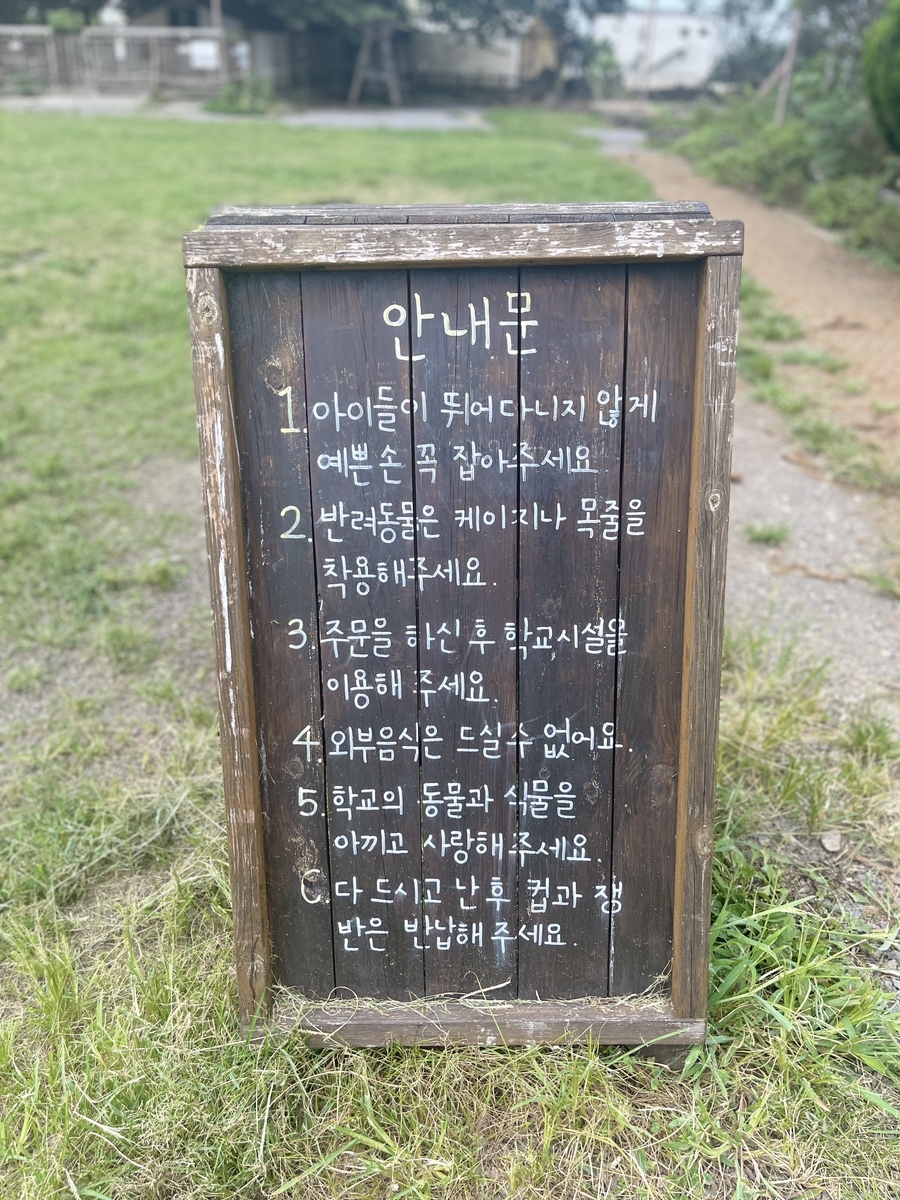 안내문
1. 아이들이 뛰어다니지 않게
예쁜손 꼭 잡아주세요
2. 반려동물은 케이지나 목줄을
착용해주세요.
3. 주문을 하신 후 학교시설을
이용해 주세요.
4. 외부음식은 드실수 없어요.
5. 학교의 동물과 식물을
아끼고 사랑해주세요.
6 다 드시고 난 후 컵과 쟁
반은 반납해주세요.